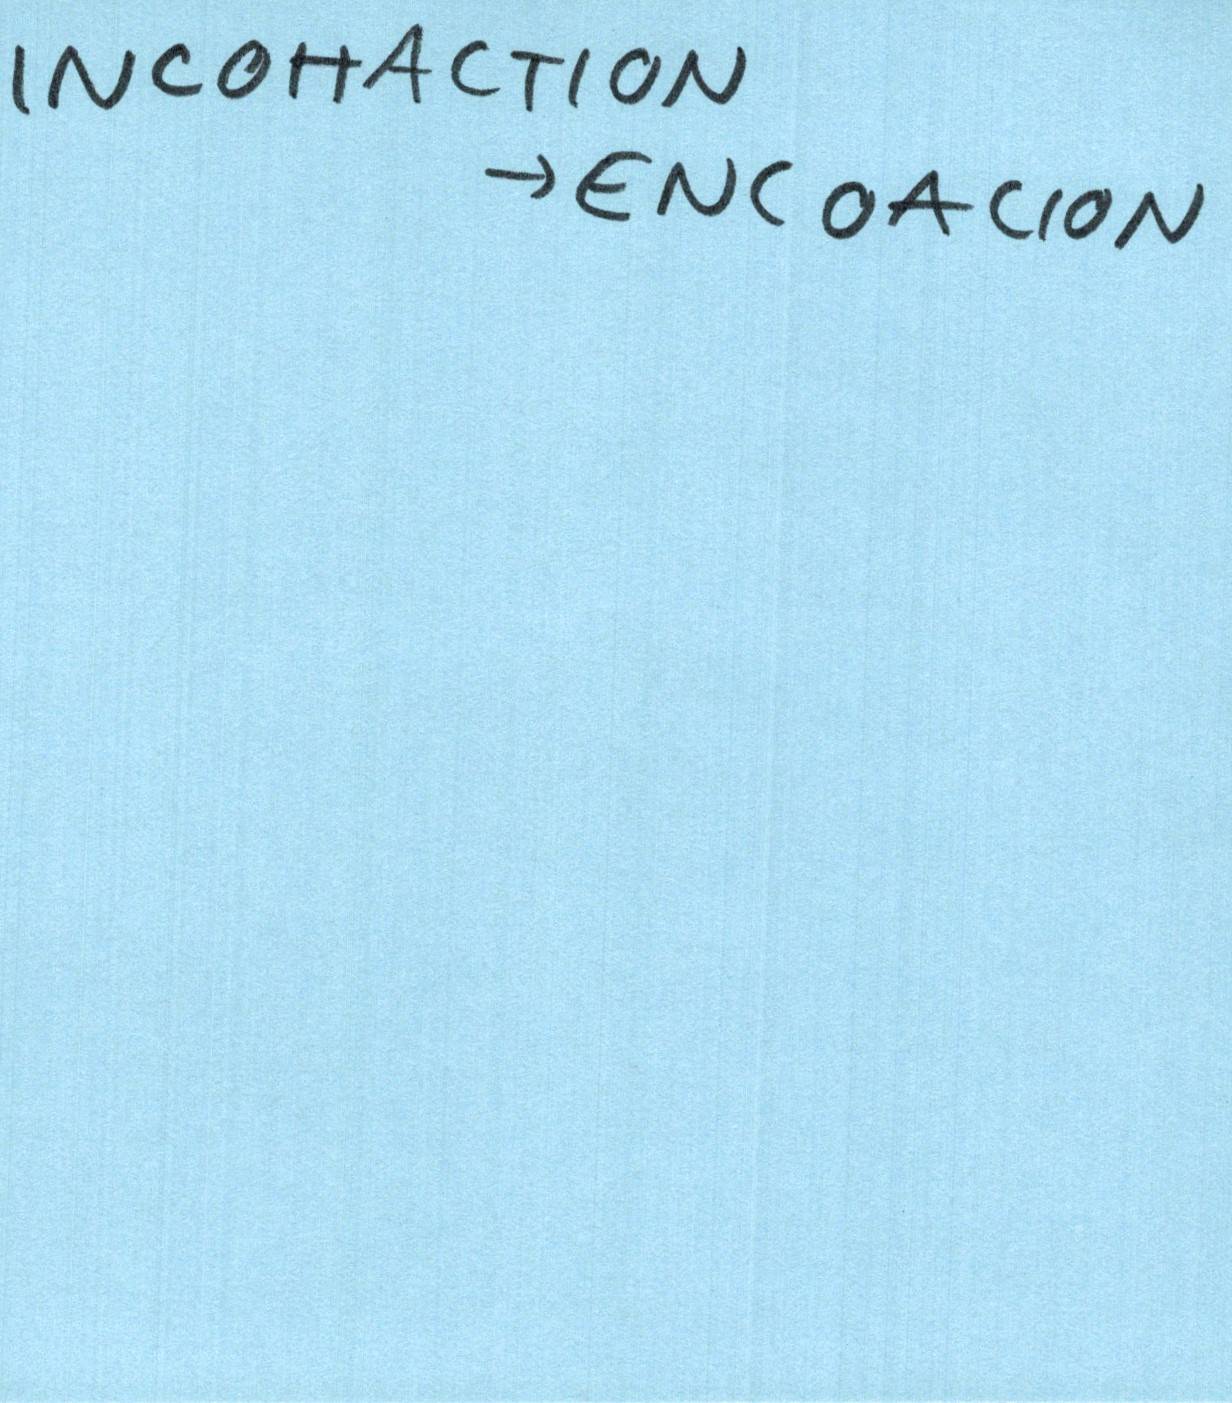 INCOHACTION
→ENCOACION